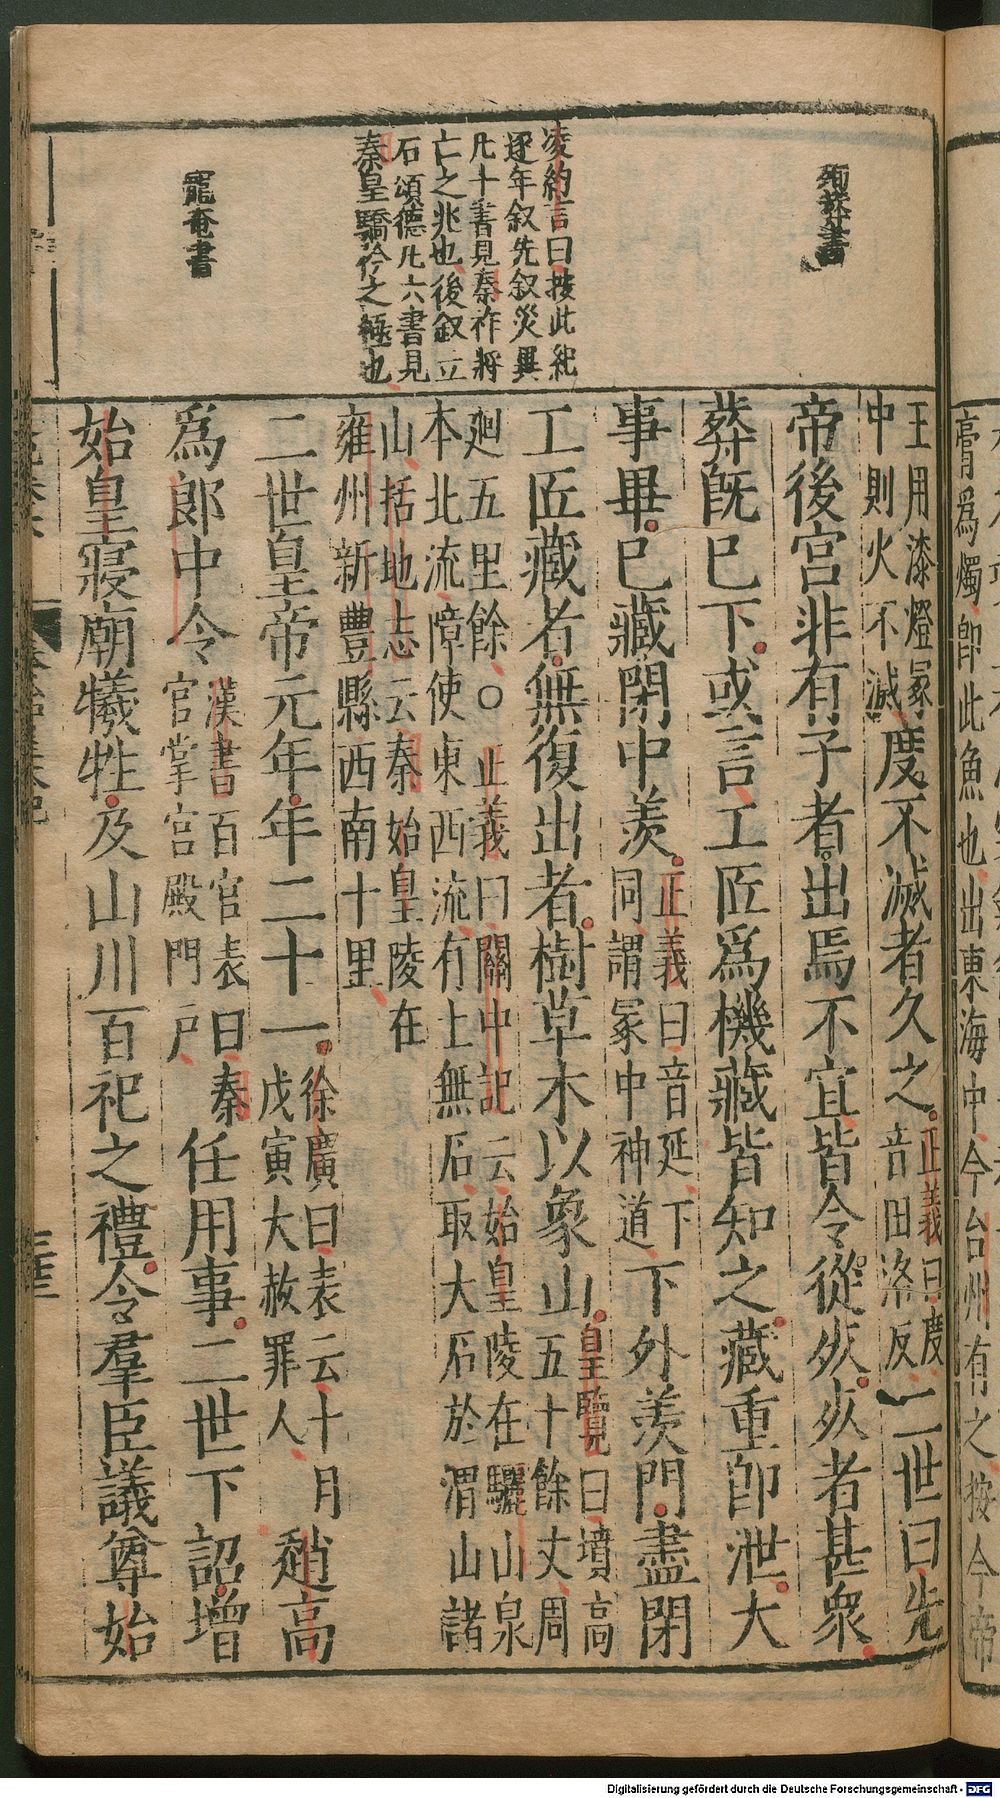 殉葬書
凌約言曰按此紀
逐年叙先叙災異
凡十書見秦祚將
亡之兆也後叙立
石頌德凡六書見
秦皇驕矜之極也
寵奄書
王用漆燈冢
中則火不滅度不滅者久之正義曰度
音田洛反二世曰先
帝後宮非有子者出焉不宜皆令從死死者甚衆
葬既已下或言工匠爲機藏皆知之藏重即泄大
事畢已藏閉中羨正義曰音延下
同謂冢中神道下外羨門盡閉
工匠藏者無復出者樹草木以象山皇覽曰墳高
五十餘丈周
廻五里餘○正義曰關中記云始皇陵在驪山泉
本北流障使東西流有土無石取大石於渭山諸
山括地志云秦始皇陵在
雍州新豐縣西南十里
二世皇帝元年年二十一徐廣曰表云十月
戊寅大赦罪人趙高
爲郎中令漢書百官表曰秦
官掌宮殿門戶任用事二世下詔增
始皇寢廟犧牲及山川百祀之禮令羣臣議尊始
膏爲燭即此魚也出東海中今台州有之按今帝
Digitalisierung gefördert durch die Deutsche Forschungsgemeinschaft - DFG